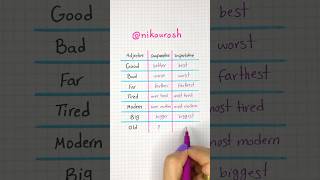 @nikourosh
Adjective Comparative Superlative
Good better best
Bad worse worst
Far farther farthest
Tired more tired most tired
Modern more modern most modern
Big bigger biggest
Old ?
best
worst
farthest
most modern
biggest